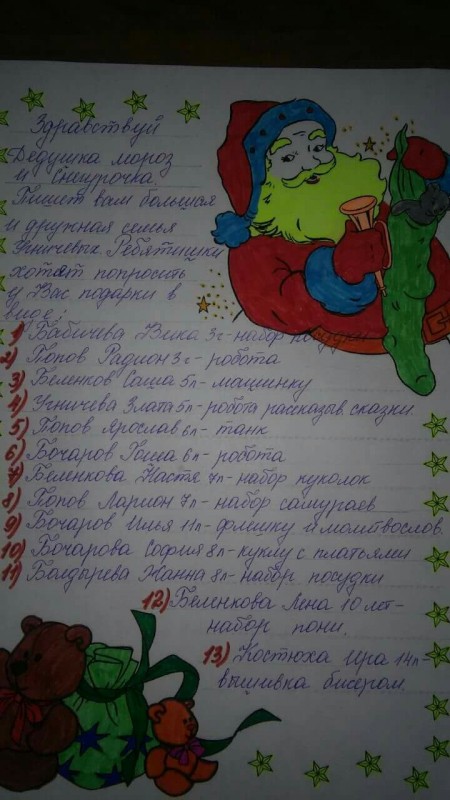 Здравствуй
Дедушка мороз
и Снигурочка.
Пишет вам большая
и дружная семья
Угничевых. Ребятишки
хотят попросить
у Вас подарки в
виде:
1) Бабичева Вика 3г-набор посудки
2) Попов Радион 3г- робота
3) Беленков Саша 5л- машинку
4) Угничева Злата 5л- робота рассказыв. сказки.
5) Попов Ярослав 6л- танк
6) Бочаров Гоша 6л- робота
7) Беленкова Настя 7л- набор куколок
8) Попов Ларион 7л- набор самураев
9) Бочаров Илья 11л- флешку и молитвослов.
10) Бочарова София 8л- куклу с платьями
11) Болдырева Жанна 8л- набор посудки
12) Беленкова Лена 10 лет-
набор пони.
13) Костюха Ира 14л-
вышивка бисером.